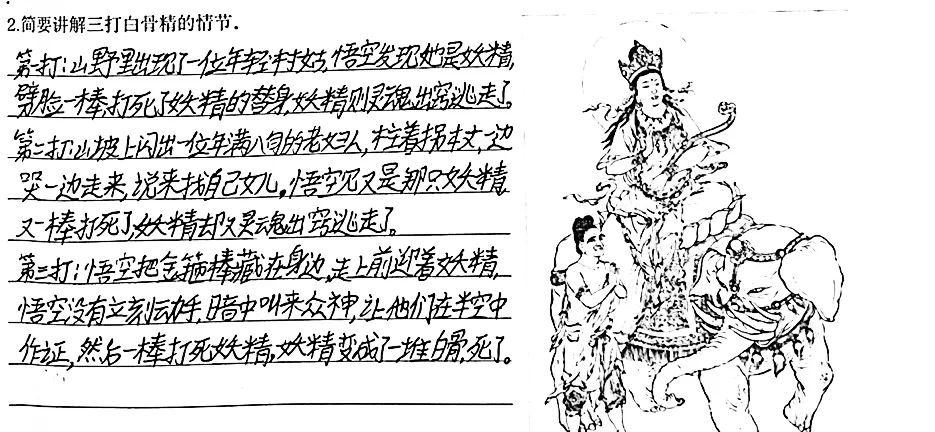 2.简要讲解三打白骨精的情节.
第一打:山野里出现了一位年轻村姑,悟空发现她是妖精,
劈脸一棒,打死了妖精的替身,妖精则灵魂出窍逃走了。
第二打:山坡上闪出一位年满八旬的老妇人,柱着拐杖,一边
哭一边走来,说来找自己女儿,悟空见又是那只妖精,
又一棒打死了,妖精却又灵魂出窍逃走了。
第三打:悟空把金箍棒藏在身边,走上前迎着妖精,
悟空没有立刻动手,暗中叫来众神,让他们在半空中
作证,然后一棒打死妖精,妖精变成了一堆白骨,死了。